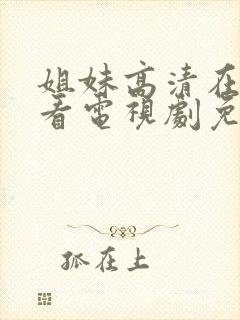 姐妹高清在
看電視劇免
狐在上